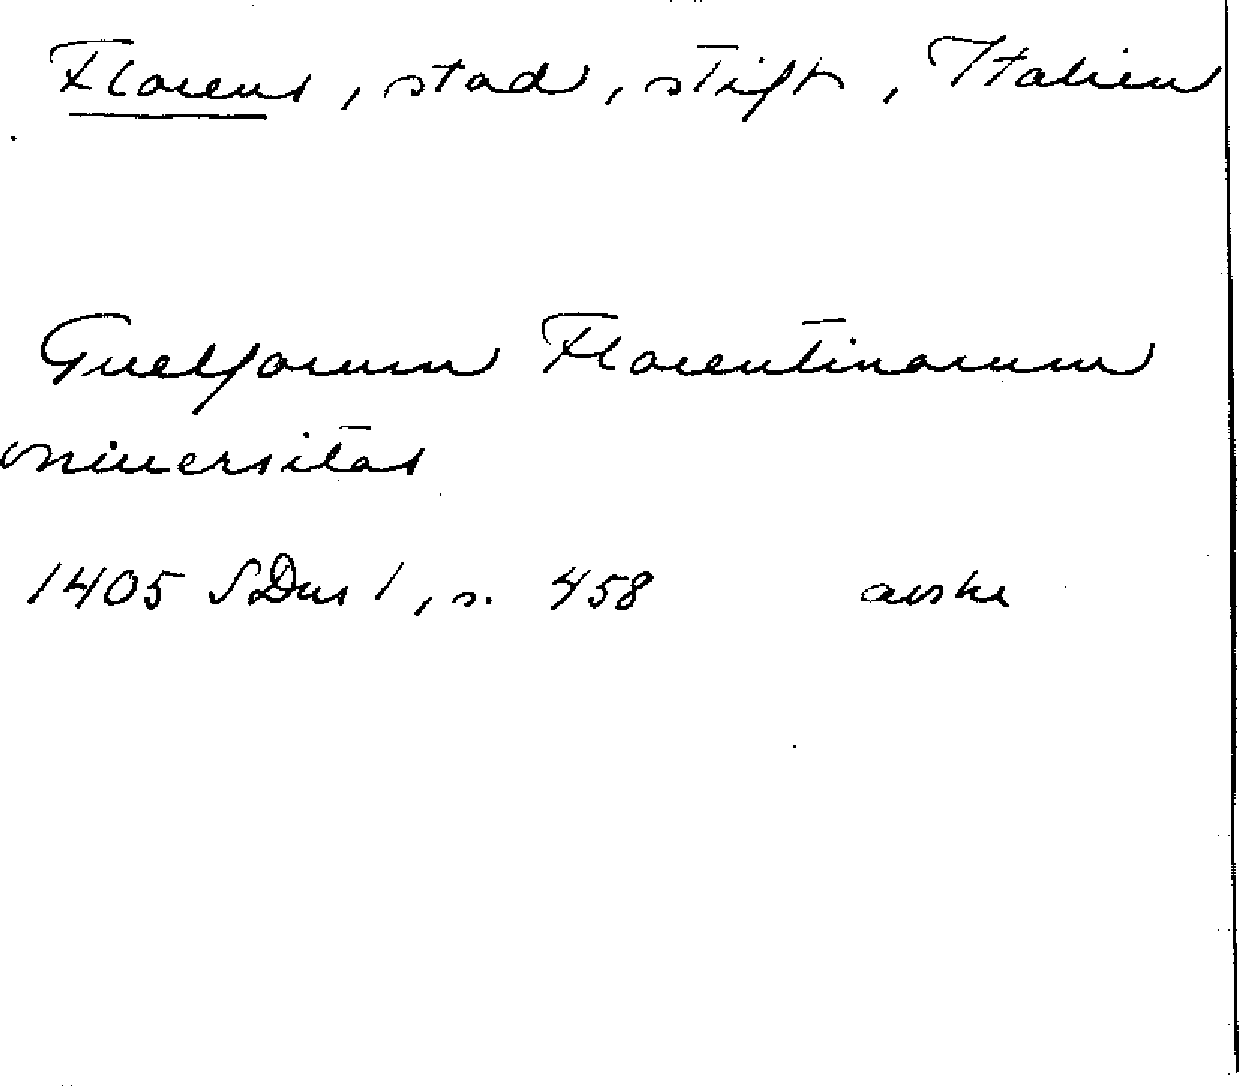 Florens, stad, stift, Italien
Guelforum Florentinorum
universitas
1405 SDns 1, s. 458 avskr